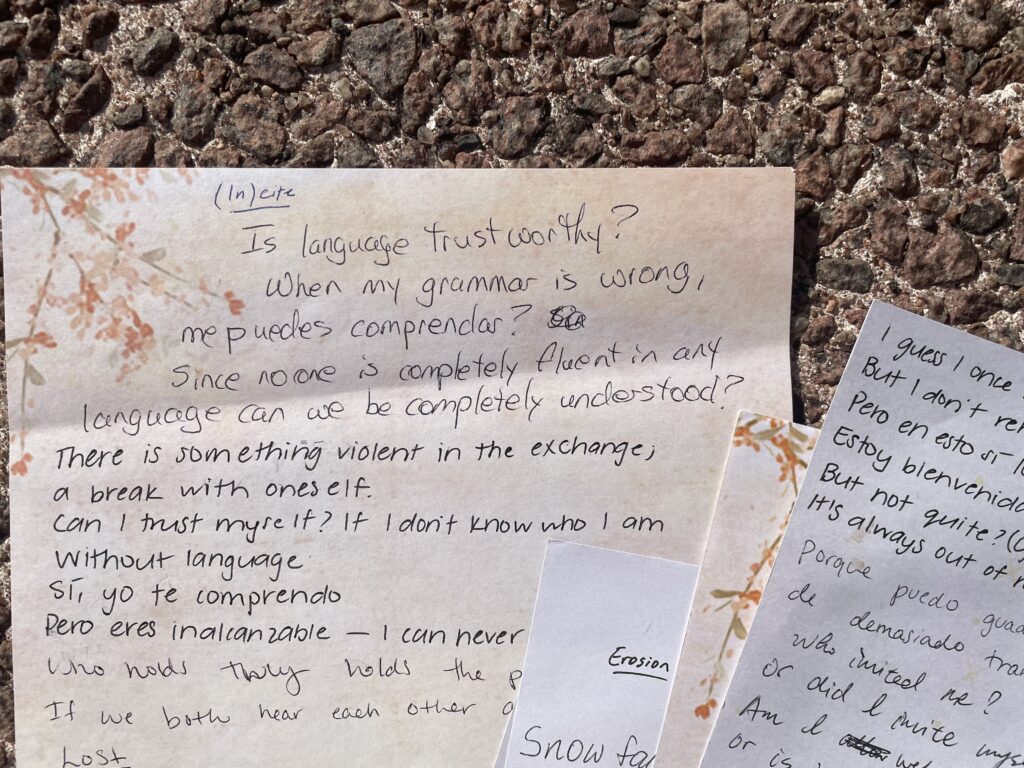 (In)cite
Is language trustworthy?
When my grammar is wrong,
me puedes comprendar?
Since no one is completely fluent in any
language can we be completely understood?
There is something violent in the exchange;
a break with oneself.
Can I trust myself? If I don't know who I am
Without language
Sí, yo te comprendo
Pero eres inalcanzable — I can never
Who holds truly holds the p
If we both hear each other a
Lost
Erosion
Snow fa
I guess I once
But I don't re
Pero en esto sí
Estoy bienvenid
But not quite?
It's always out of
Porque puedo gua
de demasiado tra
who invited me?
or did I invite mys
Am I wel
or is